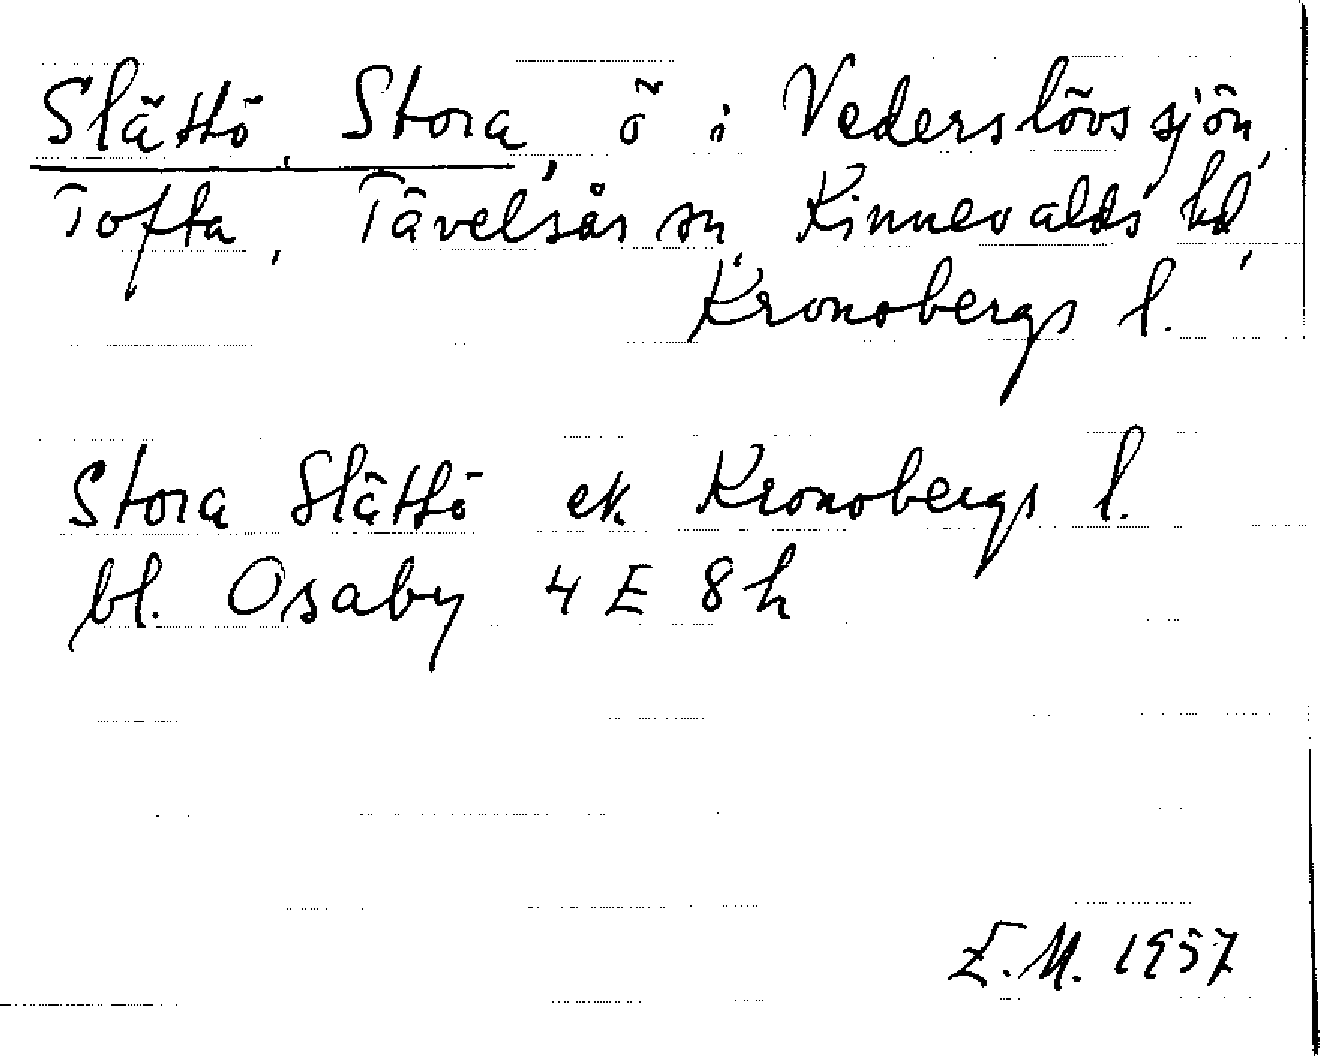 Slättö, Stora, ö i Vederslövssjön,
Tofta, Tävelsås sn, Kinnevalds hd,
Kronobergs l.
Stora Slättö ek Kronobergs l.
bl. Osaby 4 E 8 h
E.M. 1957